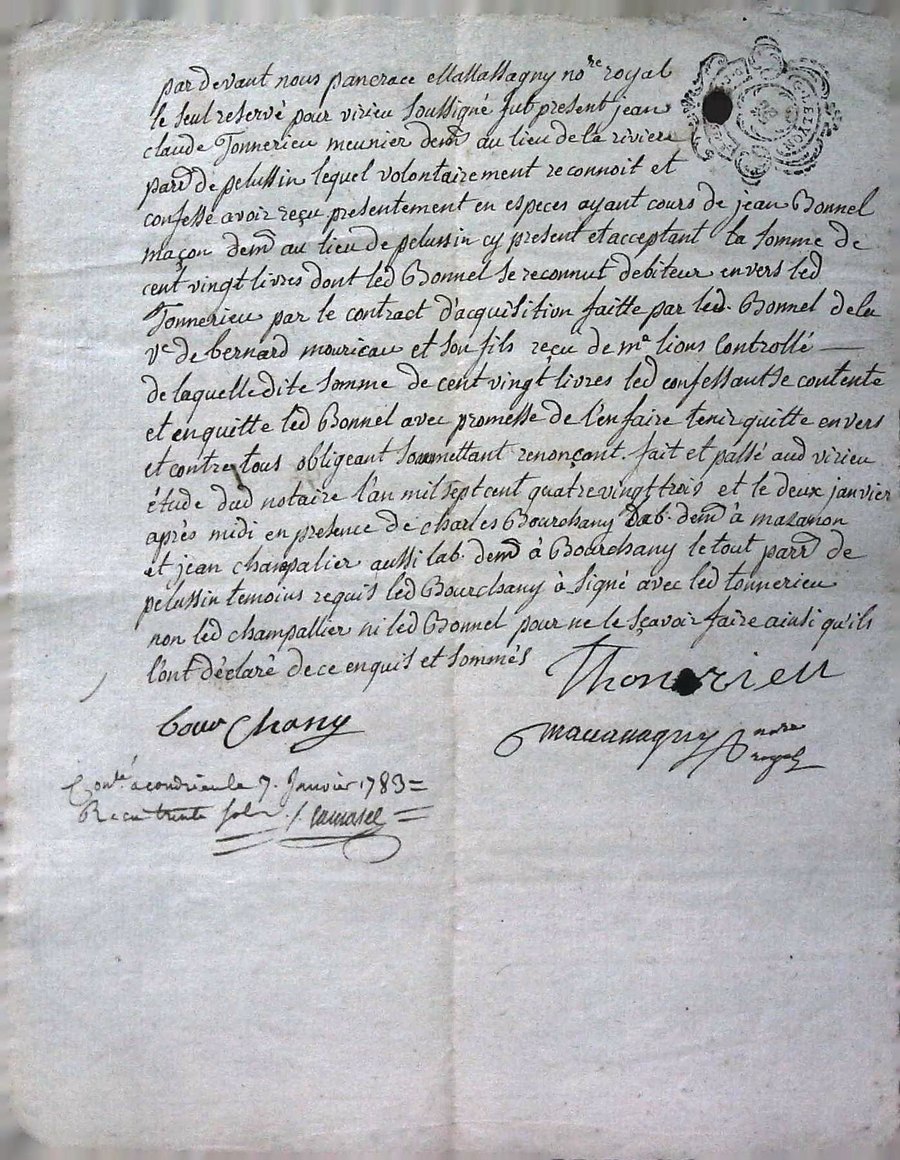 par devant nous pancrace Mallassagny no.re royal
le seul reservé pour virieu soussigné fut present jean
claude Tonnerieu meunier demt au lieu de la riviere
parr. de pelussin lequel volontairement reconnoit et
confesse avoir reçu presentement en especes ayant cours de jean Bonnel
maçon demt au lieu de pelussin cy present et acceptant la somme de
cent vingt livres dont led Bonnel se reconnut debiteur envers led
Tonnerieu par le contract d'acquisition faitte par led. Bonnel de la
ve de bernard mouricau et son fils reçu de me lions Controllé —
de laquelle dite somme de cent vingt livres led confessant se contente
et en quitte led Bonnel avec promesse de l'en faire tenir quitte envers
et contre tous obligeant soumettant renonçant. fait et passé aud virieu
étude dud notaire l'an mil sept cent quatre vingt trois et le deux janvier
après midi en presence de charles Bourchany lab. demt à mazanon
et jean champalier aussi lab. demt à Bourchany le tout parr. de
pelussin temoins requis led Bourchany à signé avec led tonnerieu
non led champallier ni led Bonnel pour ne le sçavoir faire ainsi qu'ils
l'ont déclaré de ce enquis et sommés
Thonerieu
bour Chany
nore
royal
Conlé a condrieu le 7. Janvier 1783=
Recu trente sols
DE LYON